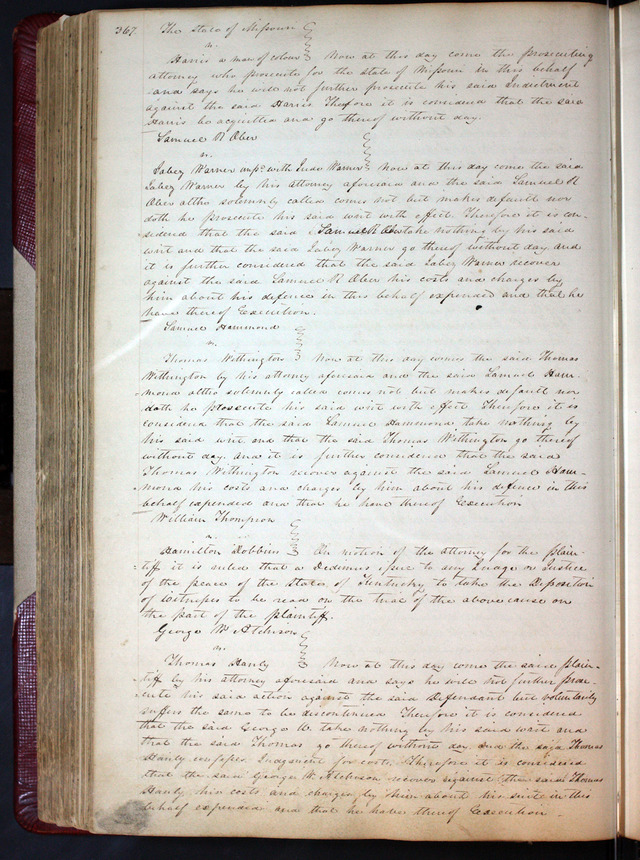 367.
The State of Missouri
vs.
Harris a man of colour Now at this day come the prosecuting
attorney who prosecutes for the state of Missouri in this behalf
and says he will not further prosecute his said Indictment
against the said Harris Therefore it is considered that the said
Harris be acquitted and go thereof without day.
Samuel R Ober
vs.
Jabez Warner impd. with Warner Now at this day come the said
Jabez Warner by his attorney aforesaid and the said Samuel R
Ober altho solemnly called comes not but makes default nor
doth he prosecute his said writ with effect. Therefore it is con-
sidered that the said Samuel R Ober take nothing by his said
writ and that the said Jabez Warner go thereof without day and
it is further considered that the said Jabez Warner recover
against the said Samuel R Ober his costs and charges by
him about his defence in this behalf expended and that he
have thereof Execution.
Samuel Hammond
vs.
Thomas Withington Now at this day comes the said Thomas
Withington by his attorney aforesaid and the said Samuel Ham-
mond altho solemnly called comes not but makes default nor
doth he prosecute his said writ with effect Therefore it is
considered that the said Samuel Hammond take nothing by
his said writ and that the said Thomas Withington go thereof
without day. and it is further considered that the said
Thomas Withington recover against the said Samuel Ham-
mond his costs and charges by him about his defence in this
behalf expended and that he have thereof Execution
William Thompson
vs.
Hamilton Dobbins On motion of the attorney for the plain-
tiff it is ruled that a Dedimus issue to any Judge or Justice
of the peace of the State of Kentucky to take the Deposition
of witnesses to be read on the trial of the above cause on
the part of the plaintiff.
George W Atchison
vs.
Thomas Handy Now at this day comes the said plain-
tiff by his attorney aforesaid and says he will not further prose-
cute his said action against the said Defendant but voluntarily
suffers the same to be discontinued Therefore it is considered
that the said George W. take nothing by his said writ and
that the said Thomas go thereof without day. and the said Thomas
Handy confesses Judgment for costs. Therefore it is considered
that the said George W. Atchison recover against the said Thomas
Handy his costs and charges by him about his suit in this
behalf expended and that he have thereof Execution.